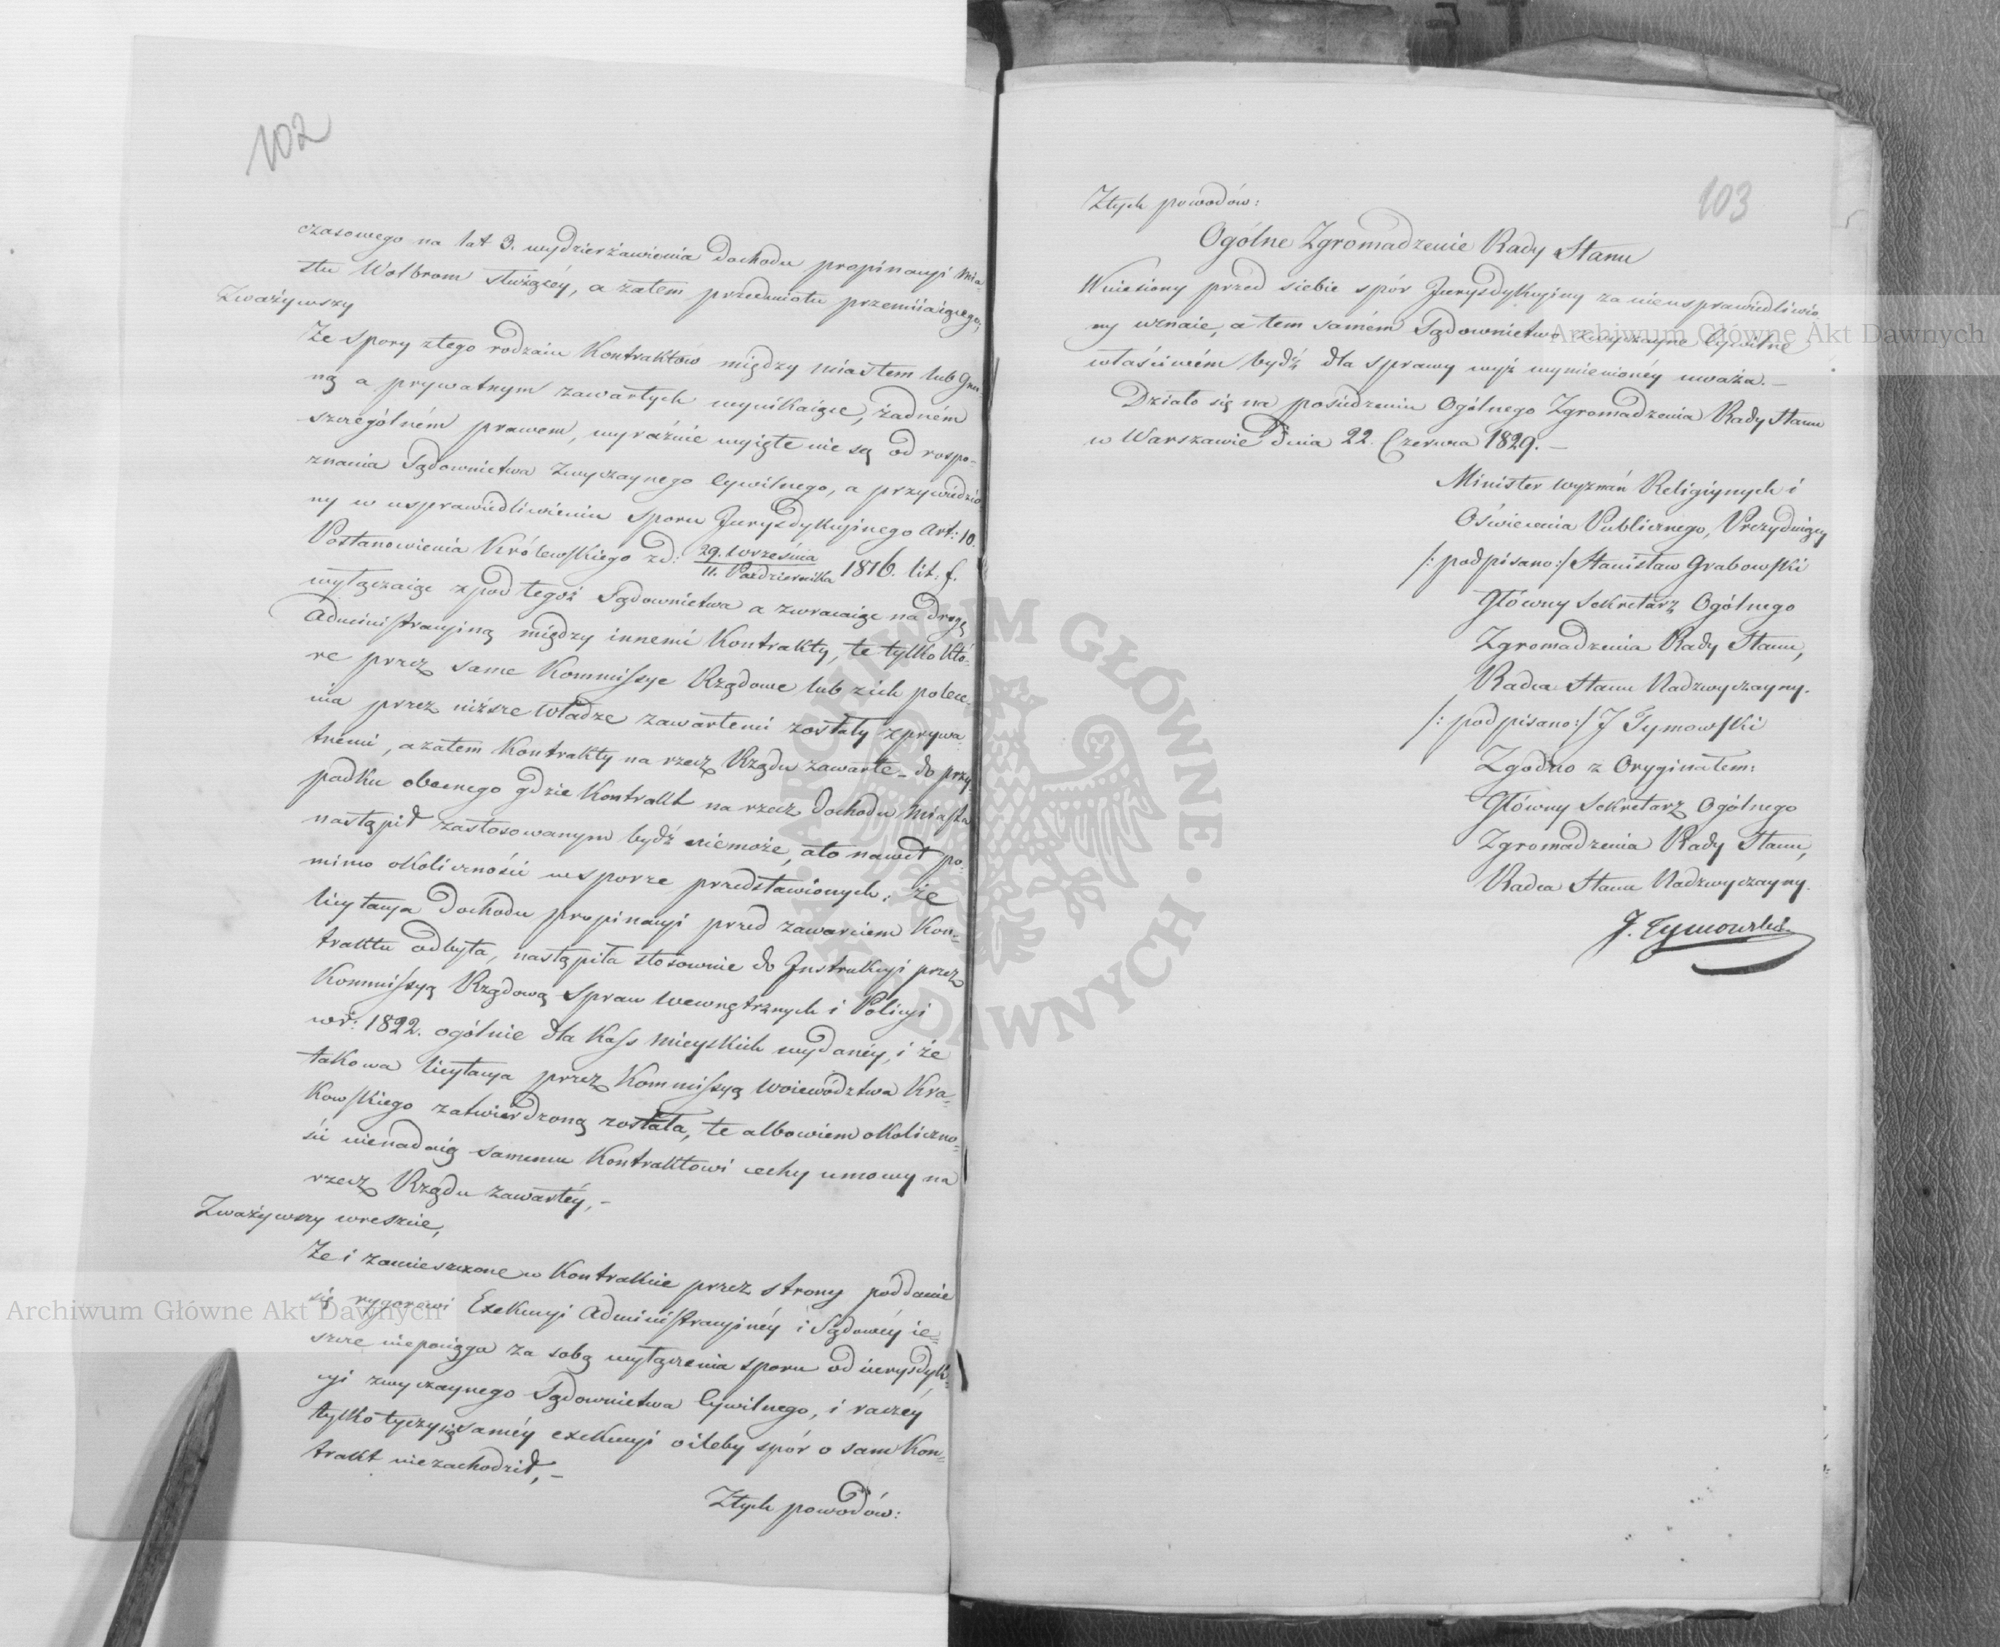 102
czasowego na lat 3. wydzierżawienia Dochodu propinacyi Mia-
stu Wolbrom służącéy, a zatem przedmiotu przemiiaiącego,
Zważywszy
Że spory ztego rodzaiu Kontraktów między miastem lub Gmi-
ną a prywatnym zawartych wynikaiące, żadném
szczególném prawem, wyraźnie wyięte nie są od rospo-
znania Sądownictwa Zwyczaynego Cywilnego, a przywiedzio
ny w usprawiedliwieniu Sporu Jurysdykcyinego Art: 10.
Postanowienia Królewskiego zd: 29. Września / 11. Października 1816. lit. f.
wyłączaiąc zpod tegoż Sądownictwa a zwracaiąc na drogę
Administracyiną między innemi Kontrakty, te tylko któ-
re przez same Kommissye Rządowe lub zich polece-
nia przez niższe Władze zawartemi zostały zprywa-
tnemi, a zatem Kontrakty na rzecz Rządu zawarte – do przy-
padku obecnego gdzie Kontrakt na rzecz Dochodu Miasta
nastąpił zastosowanym bydź niemoże, a to nawet po-
mimo okoliczności wsporze przedstawionych, że
licytacya Dochodu propinacyi przed zawarciem Kon-
traktu odbyta, nastąpiła stosownie do Instrukcyi przez
Kommissyą Rządową Spraw Wewnętrznych i Policyi
w r: 1822. ogólnie dla Kass Mieyskich wydanéy, i że
takowa licytacya przez Kommissyą Woiewództwa Kra-
kowskiego zatwierdzoną została, te albowiem okoliczno-
ści nienadaią samemu Kontraktowi cechy umowy na
rzecz Rządu zawartéy, –
Zważywszy wreszcie,
Że i zamieszczone w Kontrakcie przez strony poddanie
się rygorowi Exekucyi Administracyinéy i Sądowéy ie-
szcze niepociąga za sobą wyłączenia sporu od iurysdyk-
cyi zwyczaynego Sądownictwa Cywilnego, i raczéy
tylko tyczy się saméy exekucyi o ileby spór o sam Kon-
trakt niezachodził, –
Ztych powodów:
103
Ztych powodów:
Ogólne Zgromadzenie Rady Stanu
Wniesiony przed siebie spór Jurysdykcyiny za nieusprawiedliwio
ny uznaie, a tem samém Sądownictwo zwyczayne Cywilne
właściwém bydź dla sprawy wyż wymienionéy uważa. –
Działo się na posiedzeniu Ogólnego Zgromadzenia Rady Stanu
w Warszawie Dnia 22. Czerwca 1829. –
Minister Wyznań Religiynych i
Oświecenia Publicznego, Prezyduiący
/: podpisano:/ Stanisław Grabowski
Główny Sekretarz Ogólnego
Zgromadzenia Rady Stanu,
Radca Stanu Nadzwyczayny.
/: podpisano:/ J Tymowski
Zgodno z Oryginałem:
Główny Sekretarz Ogólnego
Zgromadzenia Rady Stanu,
Radca Stanu Nadzwyczayny.
J. Tymowski
Archiwum Główne Akt Dawnych
Archiwum Główne Akt Dawnych
ARCHIWUM GŁÓWNE AKT DAWNYCH